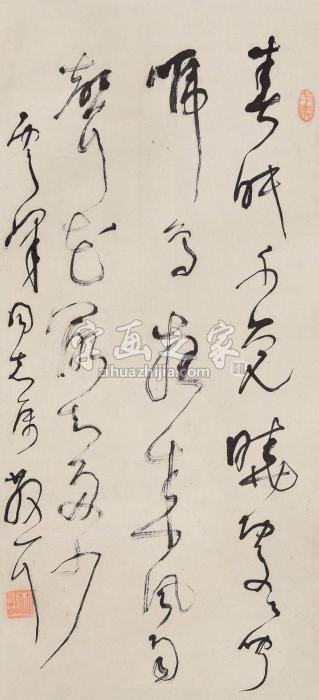 春眠不覺曉處〻聞
啼鳥夜来風雨
聲花落知多少
同志属
字画之家
zihuazhijia.com